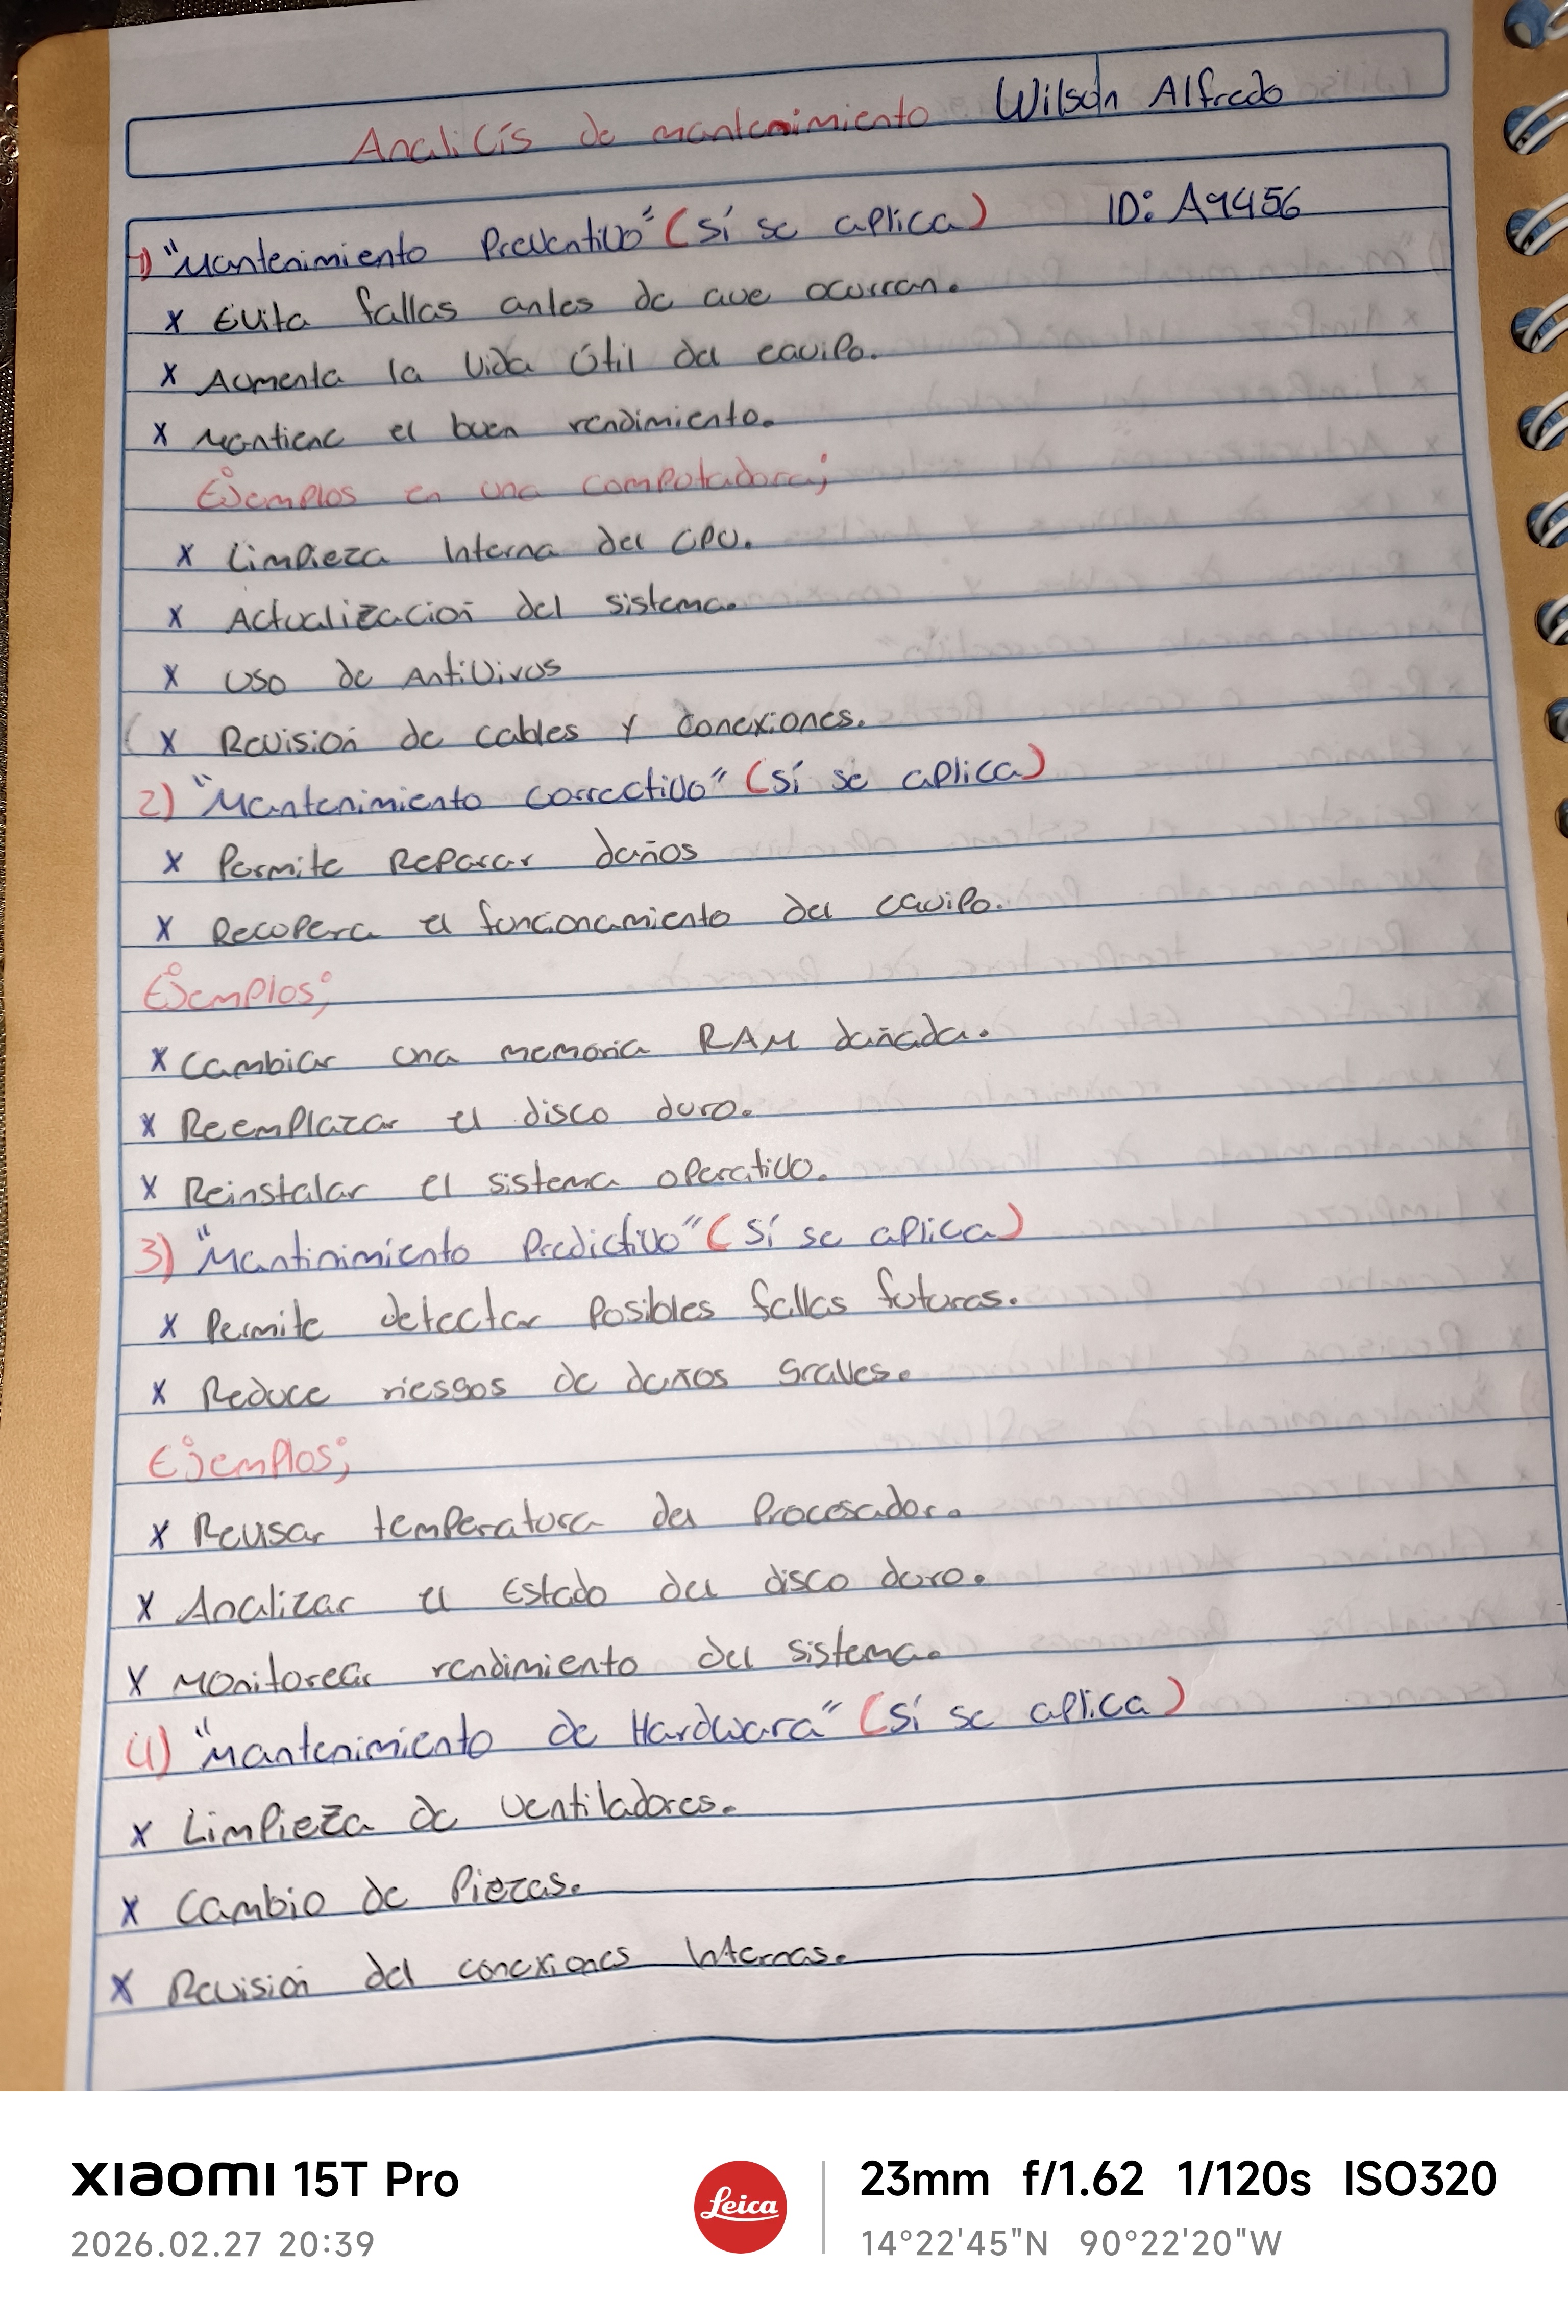 Analicís de mantenimiento Wilson Alfredo
1) "Mantenimiento Preventivo" (Sí se aplica) ID: A9456
x Evita fallas antes de que ocurran.
x Aumenta la vida útil del equipo.
x Mantiene el buen rendimiento.
Ejemplos en una computadora;
x Limpieza Interna del CPU.
x Actualización del sistema.
x Uso de Antivirus
x Revisión de cables y conexiones.
2) "Mantenimiento correctivo" (Sí se aplica)
x Permite Reparar daños
x Recopera el funcionamiento del equipo.
Ejemplos;
x Cambiar una memoria RAM dañada.
x Reemplazar el disco duro.
x Reinstalar el sistema operativo.
3) "Mantinimiento Predictivo" (Sí se aplica)
x Permite detectar Posibles fallas futuras.
x Reduce riesgos de daños graves.
Ejemplos;
x Revisar temperatura del Procesador.
x Analizar el Estado del disco duro.
x Monitorear rendimiento del sistema.
4) "Mantenimiento de Hardwara" (Sí se aplica)
x Limpieza de ventiladores.
x Cambio de Piezas.
x Revisión del conexiones Internas.
XIAOMI 15T Pro
2026.02.27 20:39
Leica
23mm f/1.62 1/120s ISO320
14°22'45"N 90°22'20"W